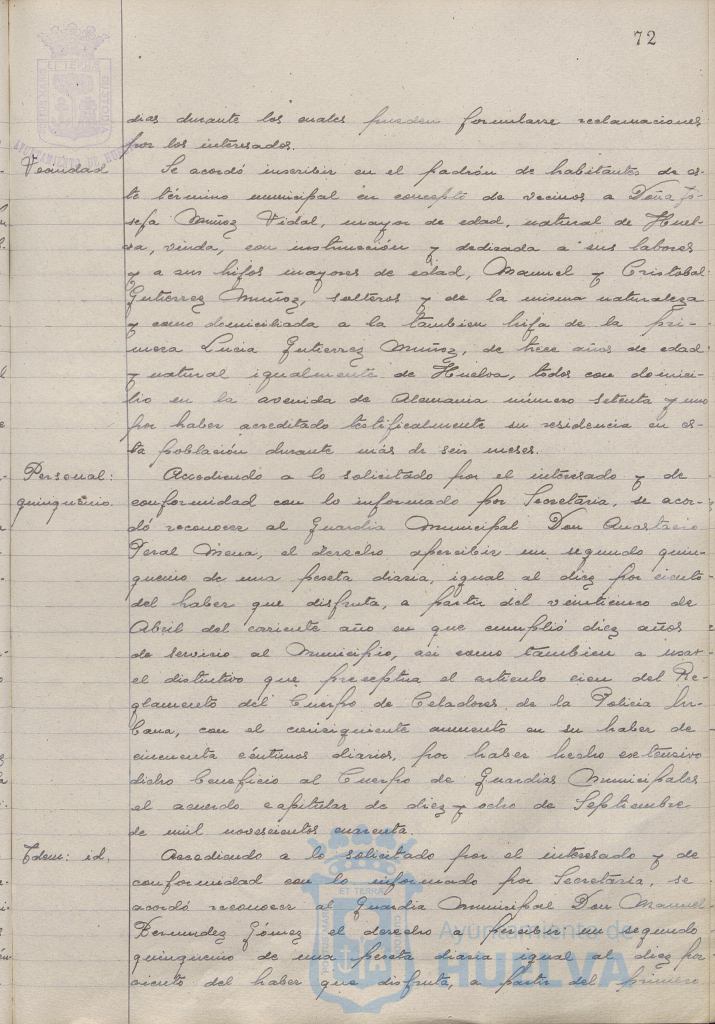 72
dias durante los cuales pueden formularse reclamaciones
por los interesados.
Vecindad
Se acordó inscribir en el padrón de habitantes de es-
te término municipal en concepto de vecinos a Doña Jo-
sefa Muñoz Vidal, mayor de edad, natural de Huel-
va, viuda, con instrucción y dedicada a sus labores
y a sus hijos mayores de edad, Manuel y Cristobal
Gutierrez Muñoz, solteros y de la misma naturaleza
y como domiciliada a la tambien hija de la pri-
mera Lucia Gutierrez Muñoz, de trece años de edad
y natural igualmente de Huelva, todos con domici-
lio en la avenida de Alemania número setenta y uno
por haber acreditado testificalmente su residencia en es-
ta población durante más de seis meses.
Personal:
quinquenio.
Accediendo a lo solicitado por el interesado y de
conformidad con lo informado por Secretaria, se acor-
dó reconocer al Guardia Municipal Don Anastacio
Peral Mena, el derecho apercibir un segundo quin-
quenio de una peseta diaria, igual al diez por ciento
del haber que disfruta, a partir del veinticinco de
Abril del coriente año en que cumplió diez años
de servicio al Municipio, asi como tambien a usar
el distintivo que preceptua el articulo cien del Re-
glamento del Cuerpo de Celadores de la Policia Ur-
bana, con el consiguiente aumento en su haber de
cincuenta céntimos diarios, por haber hecho extensivo
dicho beneficio al Cuerpo de Guardias Municipales
el acuerdo capitular de diez y ocho de Septiembre
de mil novescientos cuarenta.
Idem: id.
Accediendo a lo solicitado por el interesado y de
conformidad con lo informado por Secretaria, se
acordó reconocer al Guardia Municipal Don Manuel
Bermudez Gómez el derecho a percibir un segundo
quinquenio de una peseta diaria igual al diez por
ciento del haber que disfruta, a partir del primero
ET TERRA
AYUNTAMIENTO DE HUELVA
ET TERRA
Ayuntamiento de
HUELVA